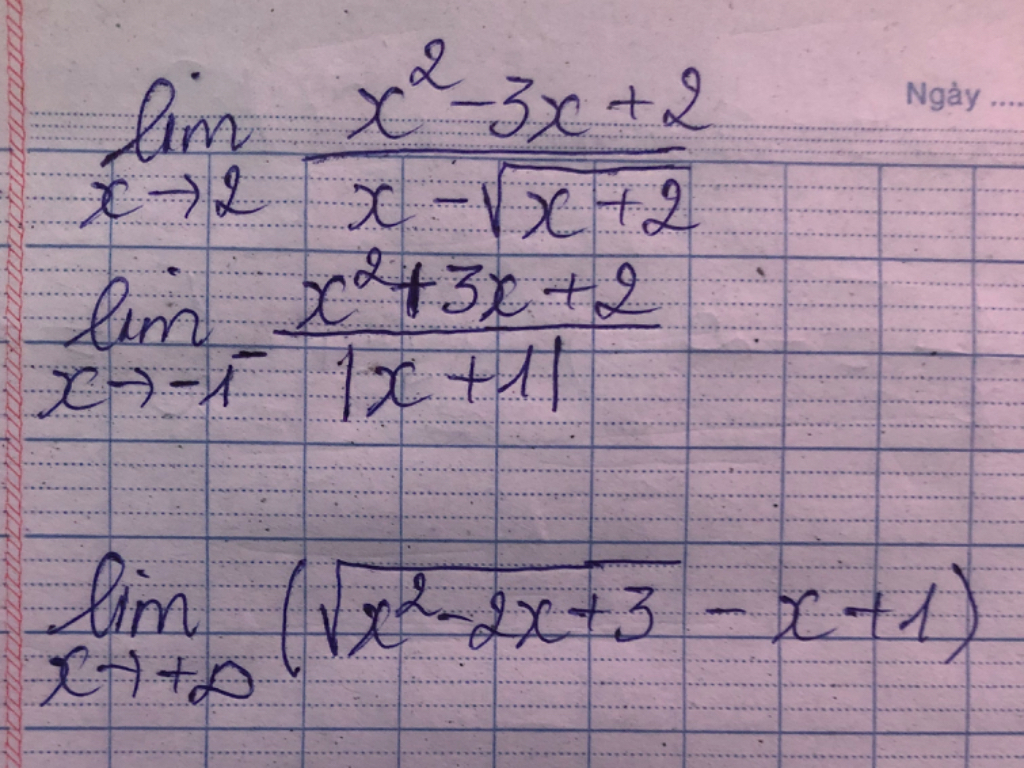 Ngày ....
lim x→2 (x² - 3x + 2)/(x - √(x + 2))
lim x→-1⁻ (x² + 3x + 2)/|x + 1|
lim x→+∞ (√(x² - 2x + 3) - x + 1)